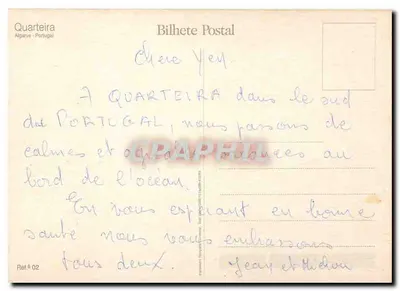 Quarteira
Algarve - Portugal
Bilhete Postal
Chers
A QUARTEIRA dans le sud
du PORTUGAL, nous passons de
calmes et vacances au
bord de l'océan.
En vous espérant en bonne
santé nous vous embrassons
tous deux. Jean et Michou
Ref.ª 02